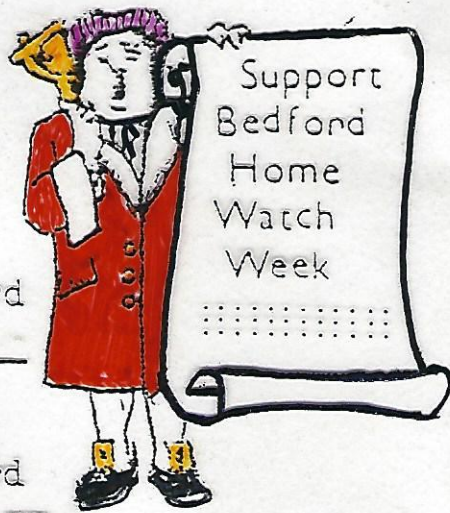 Support
Bedford
Home
Watch
Week